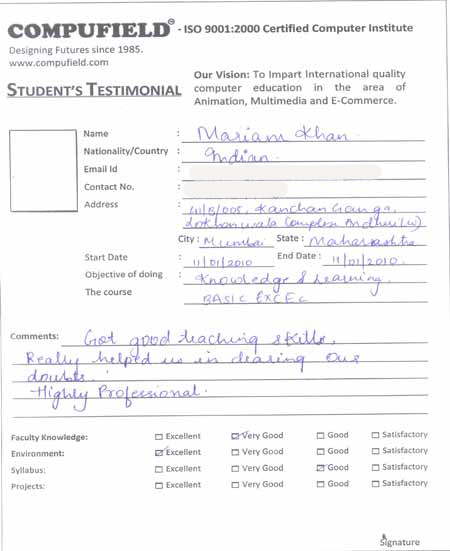 COMPUFIELD® - ISO 9001:2000 Certified Computer Institute
Designing Futures since 1985.
www.compufield.com
Our Vision: To Impart International quality
STUDENT'S TESTIMONIAL computer education in the area of
Animation, Multimedia and E-Commerce.
Name : Mariam Khan.
Nationality/Country : Indian.
Email Id :
Contact No. :
Address : Kanchan Ganga,
Complex Andheri (w)
City : Mumbai State : Maharashtra
Start Date : 11/01/2010 End Date : 11/01/2010.
Objective of doing : Knowledge & Learning.
The course BASIC EXCEL
Comments: Got good teaching skills.
Really helped us in clearing our
doubts.
Highly Professional.
Faculty Knowledge: ☐ Excellent ☑ Very Good ☐ Good ☐ Satisfactory
Environment: ☑ Excellent ☐ Very Good ☐ Good ☐ Satisfactory
Syllabus: ☐ Excellent ☐ Very Good ☑ Good ☐ Satisfactory
Projects: ☐ Excellent ☐ Very Good ☐ Good ☐ Satisfactory
Signature